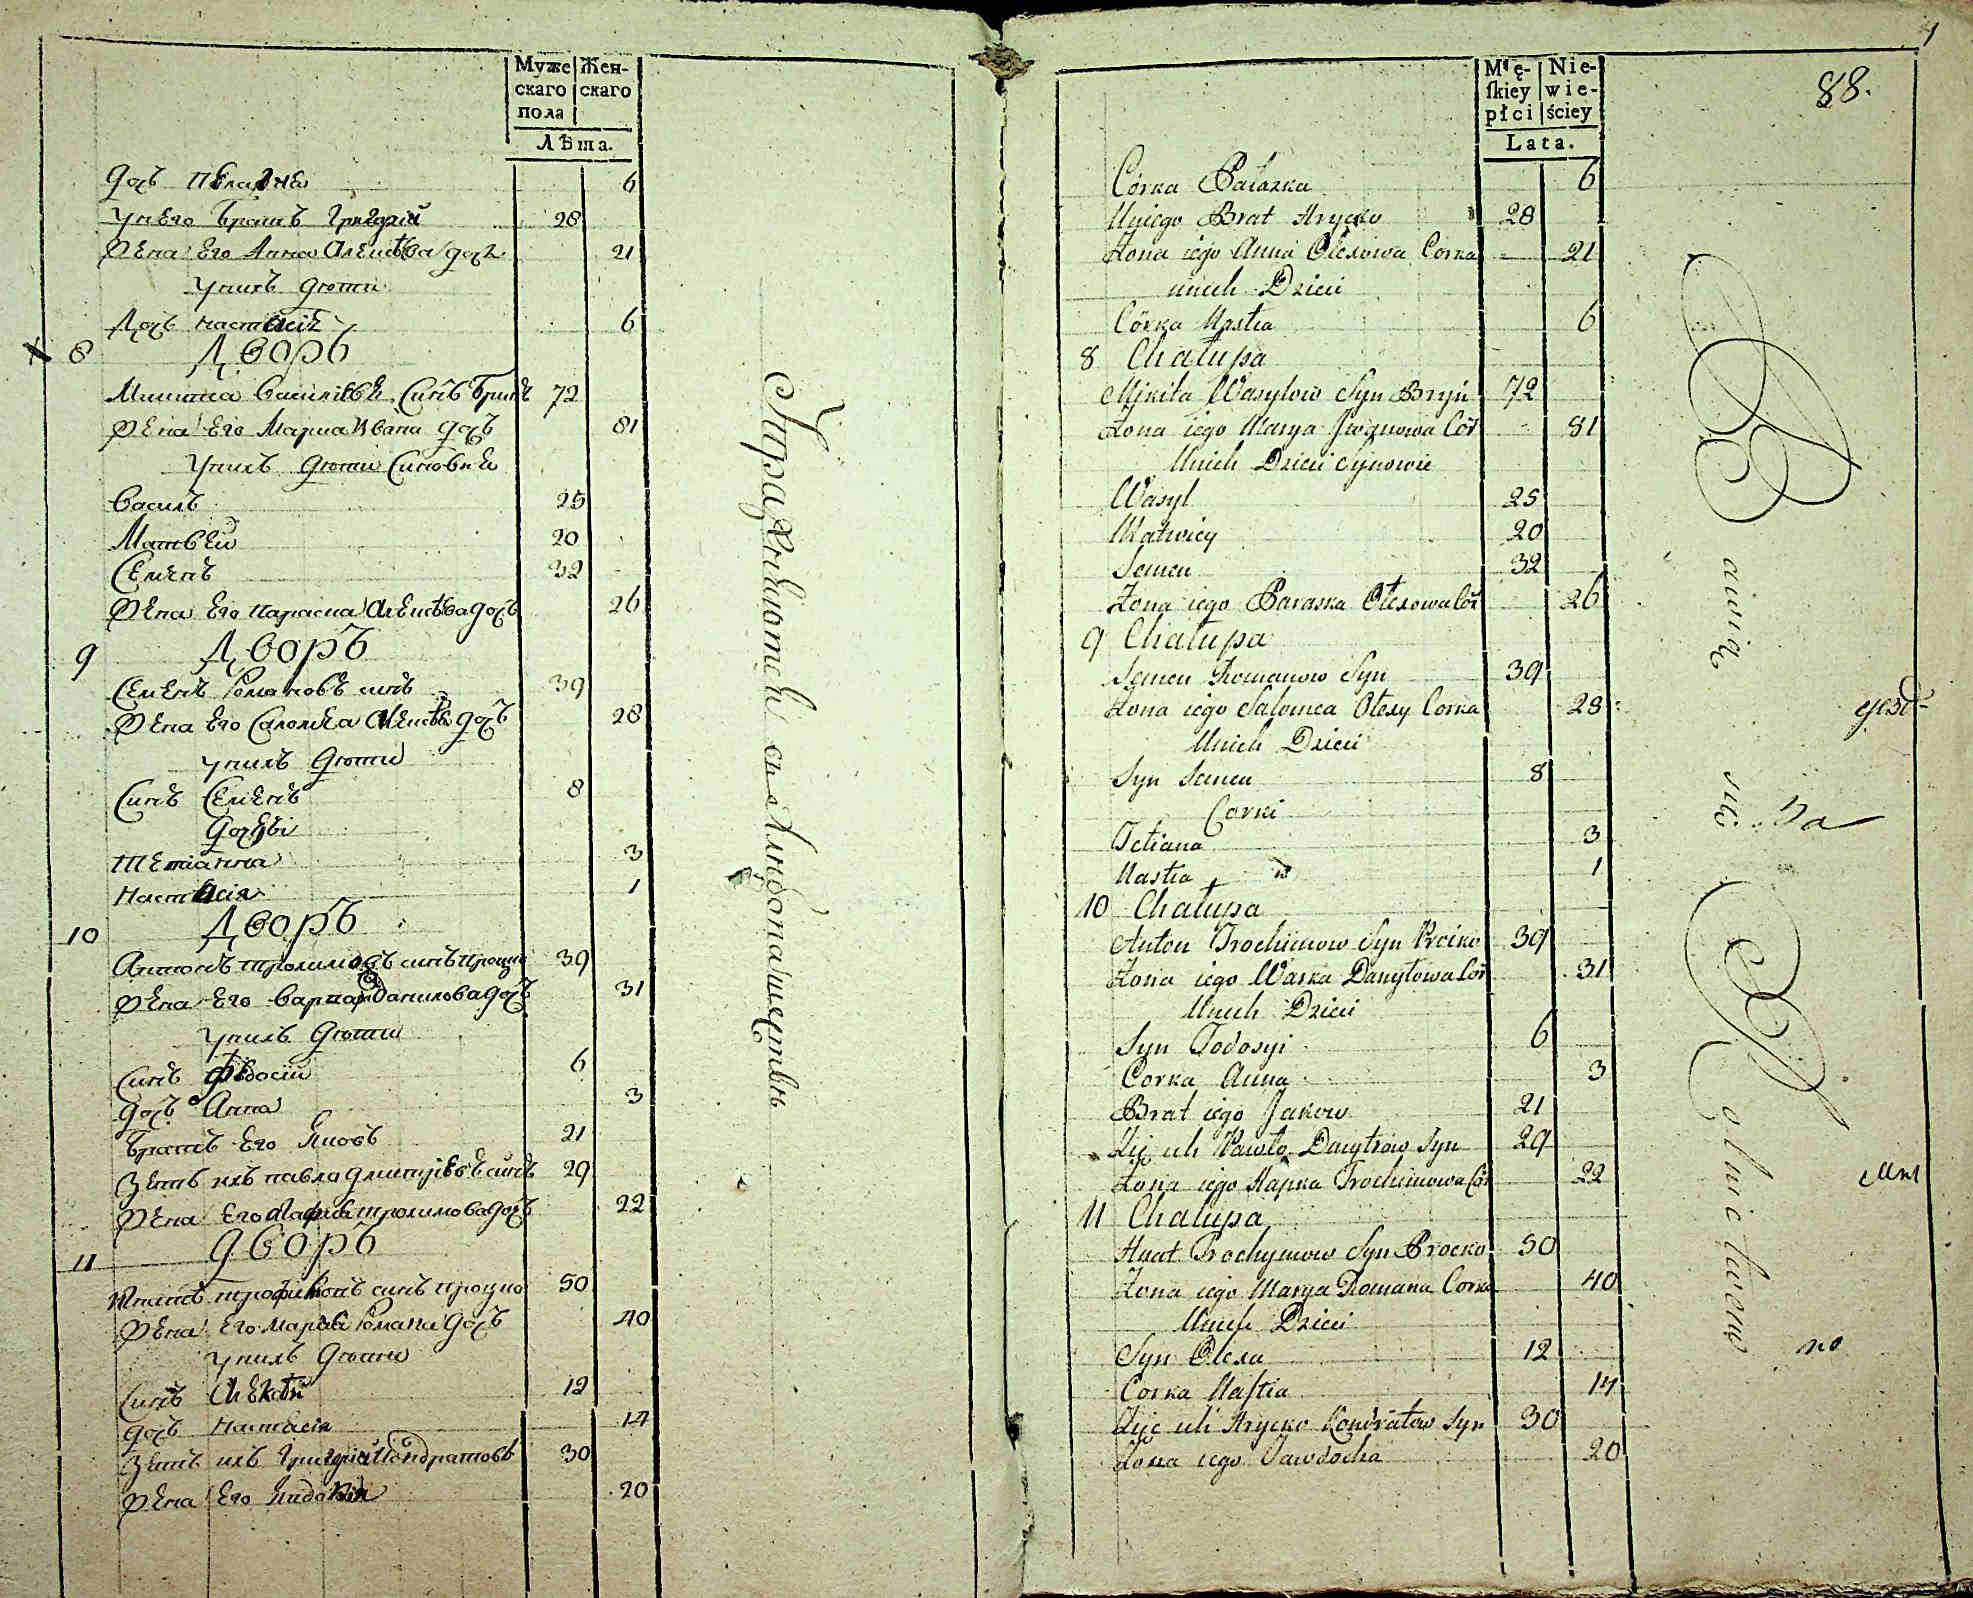 Муже
скаго
пола
Жен-
скаго
Лѣта.
дочь Пелагиѧ 6
У него братъ Григорій 28
Жена Его Анна Алексѣева дочь 21
У нихъ дѣти
Дочь Настасія 6
8 Дворъ
Микита Василіевъ Синъ 72
Жена Его Мариа Ивана дочь 81
У нихъ дѣти Синовья
Василь 25
Матвей 20
Семенъ 32
Жена Его Параска Алексѣева дочь 26
9 Дворъ
Семенъ Романовъ синъ 39
Жена Его Саломея Алексѣева дочь 28
У нихъ дѣти
Синъ Семенъ 8
дочери
Тетіанна 3
Настасія 1
10 Дворъ
Антонъ Трохимовъ синъ 39
Жена Его Данилова дочь 31
У нихъ дѣти
Синъ Федосій 6
дочь Анна 3
Братъ Его Яковъ 21
Зять ихъ Павло Дмитріевъ синъ 29
Жена Его Трохимова дочь 22
11 дворъ
Игнатъ синъ Процко 50
Жена Его Мариа Романа дочь 40
У нихъ дѣти
Синъ Алексѣй 12
дочь Настасія 14
Зять ихъ Григорій Кондратовъ 30
Жена Его Евдокія 20
Упражняются въ хлѣбопашествѣ
Mę-
skiey
płci
Nie-
wie-
ściey
Lata.
1
88.
Córka Pałazka 6
Uniego Brat Hrycko 28
Żona iego Anna Olexowa Corka 21
unich Dzieci
Córka Nastia 6
8 Chałupa
Mikita Wasylow Syn Bryń 72
Żona iego Marya Jwanowa Cor 81
Unich Dzieci Synowie
Wasyl 25
Matwiey 20
Semen 32
Żona iego Paraska Olexowa Cor 26
9 Chałupa
Semen Romanow Syn 39
Żona iego Salomea Olexy Corka 28
Unich Dzieci
Syn Semen 8
Corki
Tetiana 3
Nastia 1
10 Chałupa
Anton Trochimow Syn Procko 39
Żona iego Warka Danyłowa Cor 31
Unich Dzieci
Syn Todosyi 6
Corka Anna 3
Brat iego Jakow 21
Zięć ich Pawło Dmytrow Syn 29
Żona iego Hapka Trochimowa Cor 22
11 Chałupa
Hnat Trochymow Syn Procko 50
Żona iego Marya Romana Corka 40
Unich Dzieci
Syn Olexa 12
Corka Nastia 14
Zięć ich Hrycko Kondratow Syn 30
Żona iego Jawdocha 20
Bawią się Rolnictwem